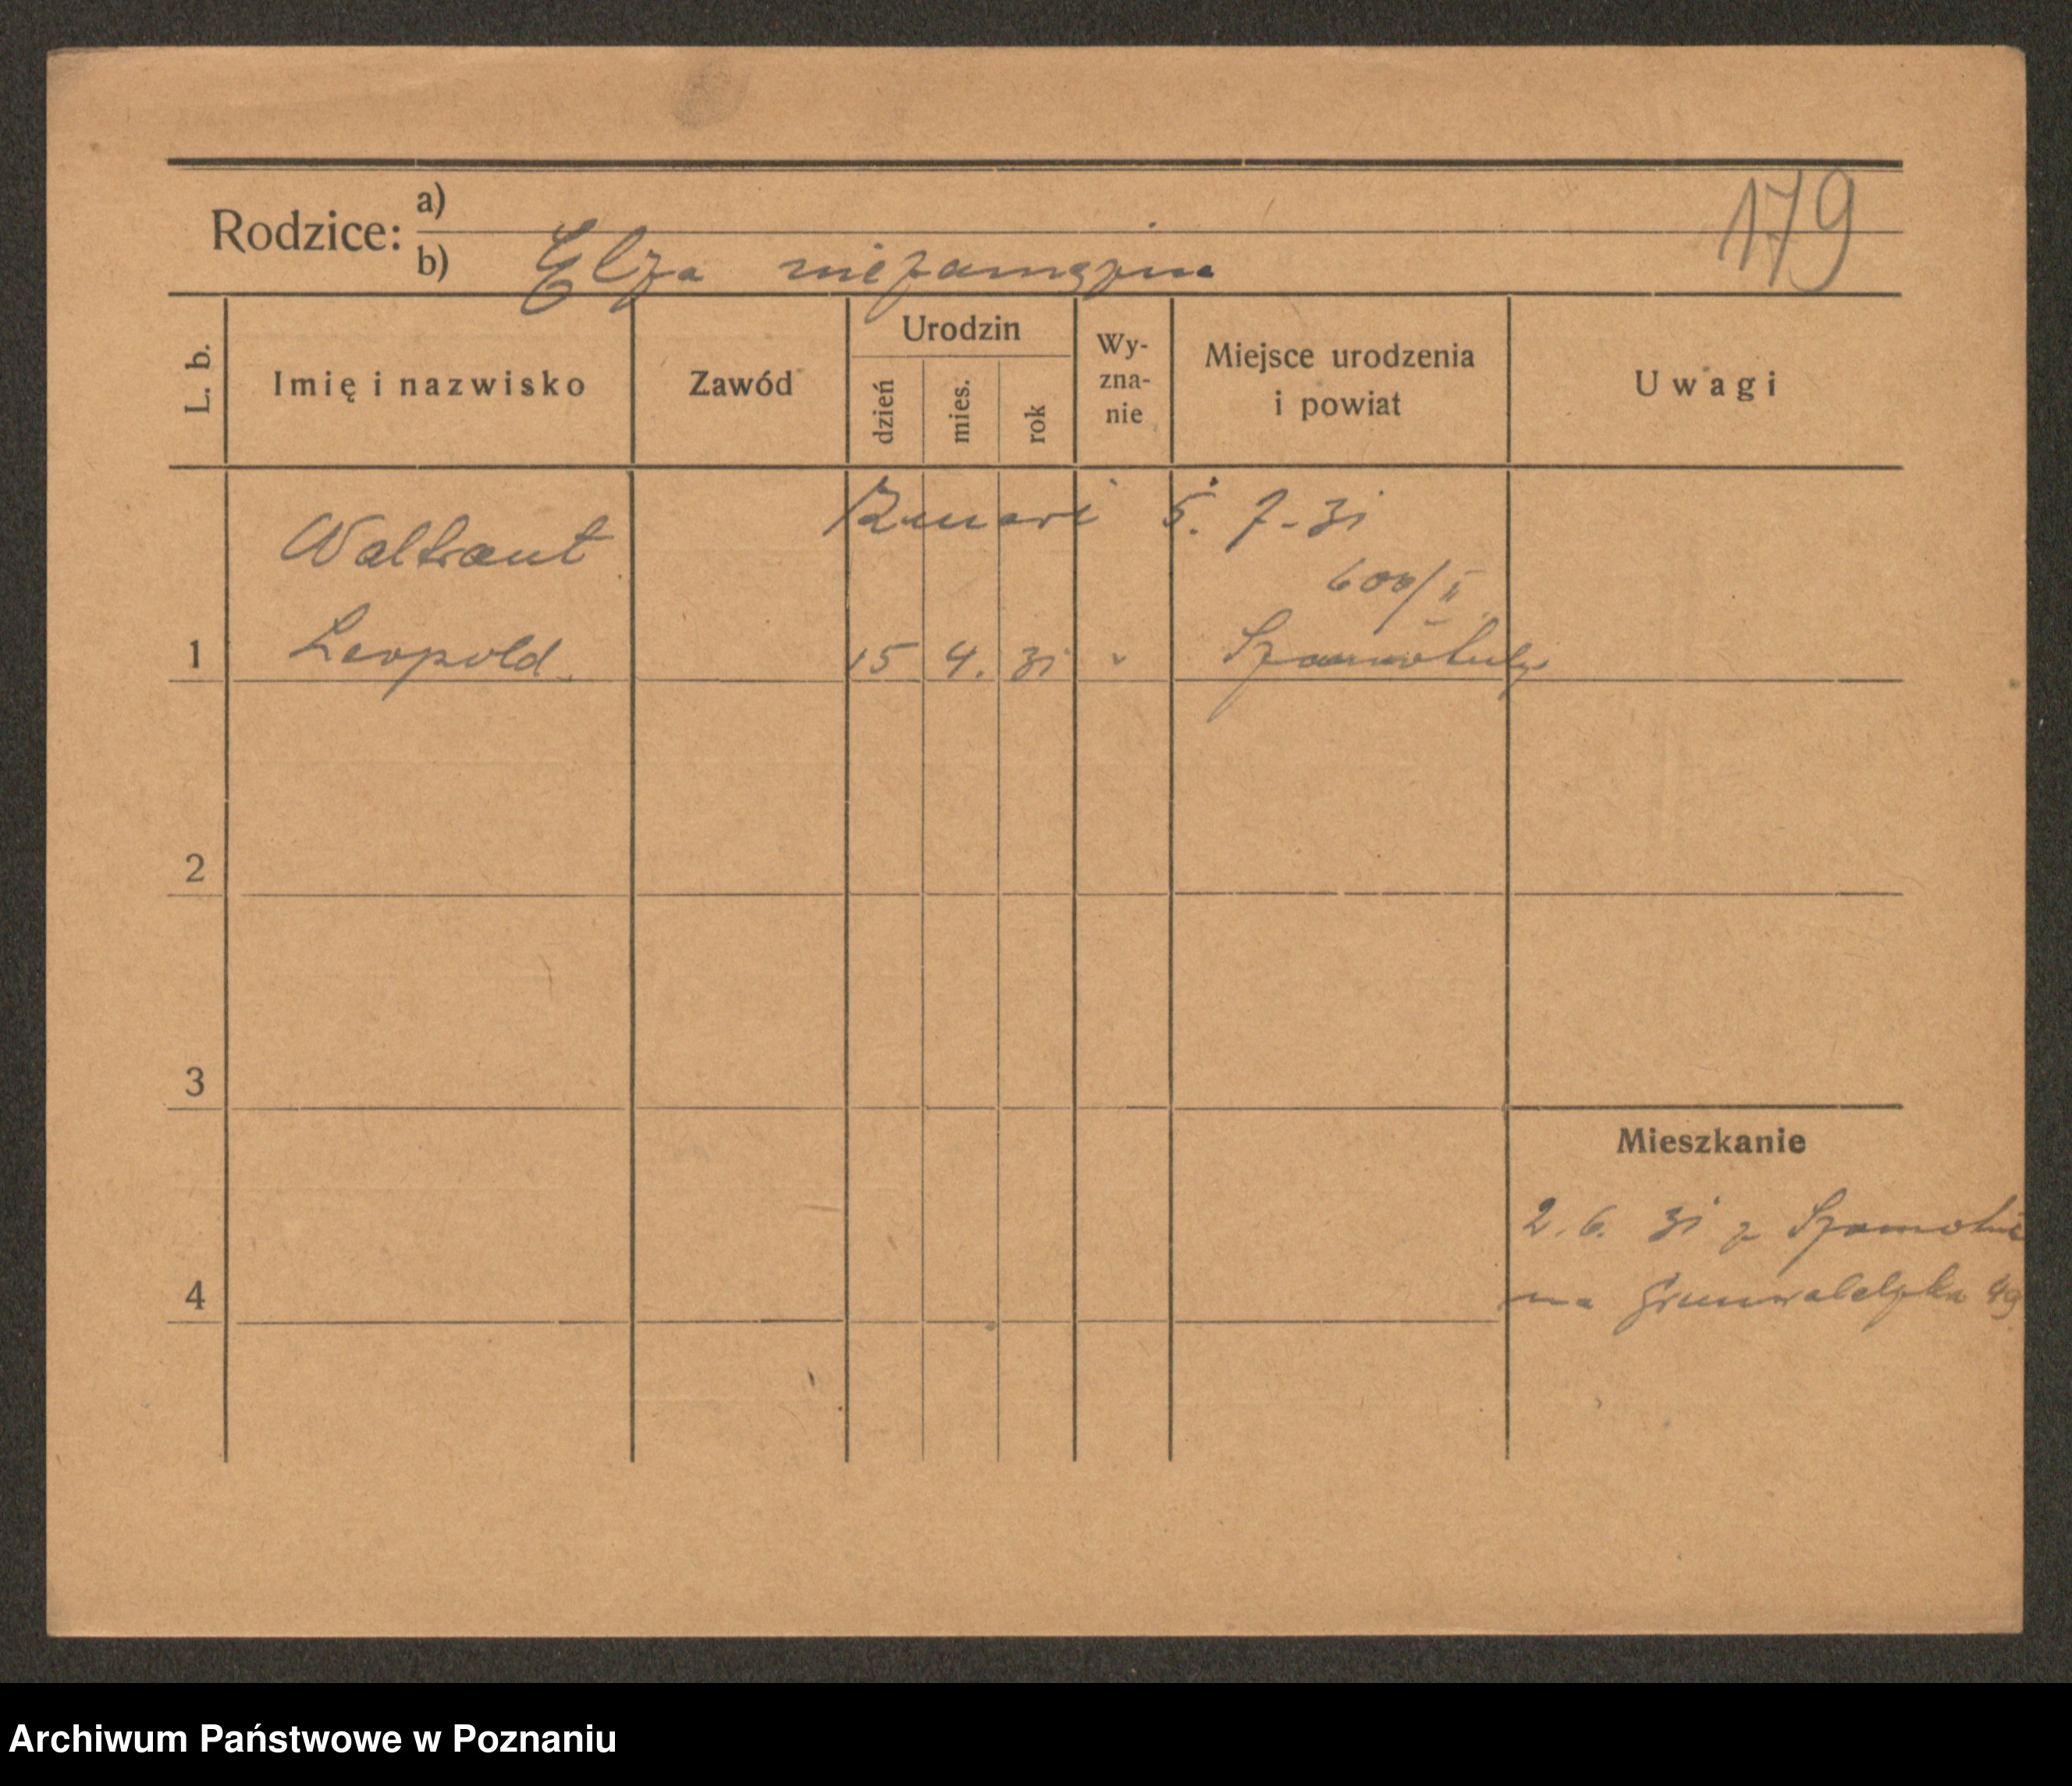 179
Rodzice: a)
b) Elza niezamężna
L. b.
Imię i nazwisko
Zawód
Urodzin
dzień
mies.
rok
Wy-
zna-
nie
Miejsce urodzenia
i powiat
Uwagi
Waltraut 5. 7-31
600/II
1 Leopold 15 4. 31 " Szamotuły
2
3
Mieszkanie
2.6. 31 z Szamotuł
na Grunwaldzka 49
4
Archiwum Państwowe w Poznaniu